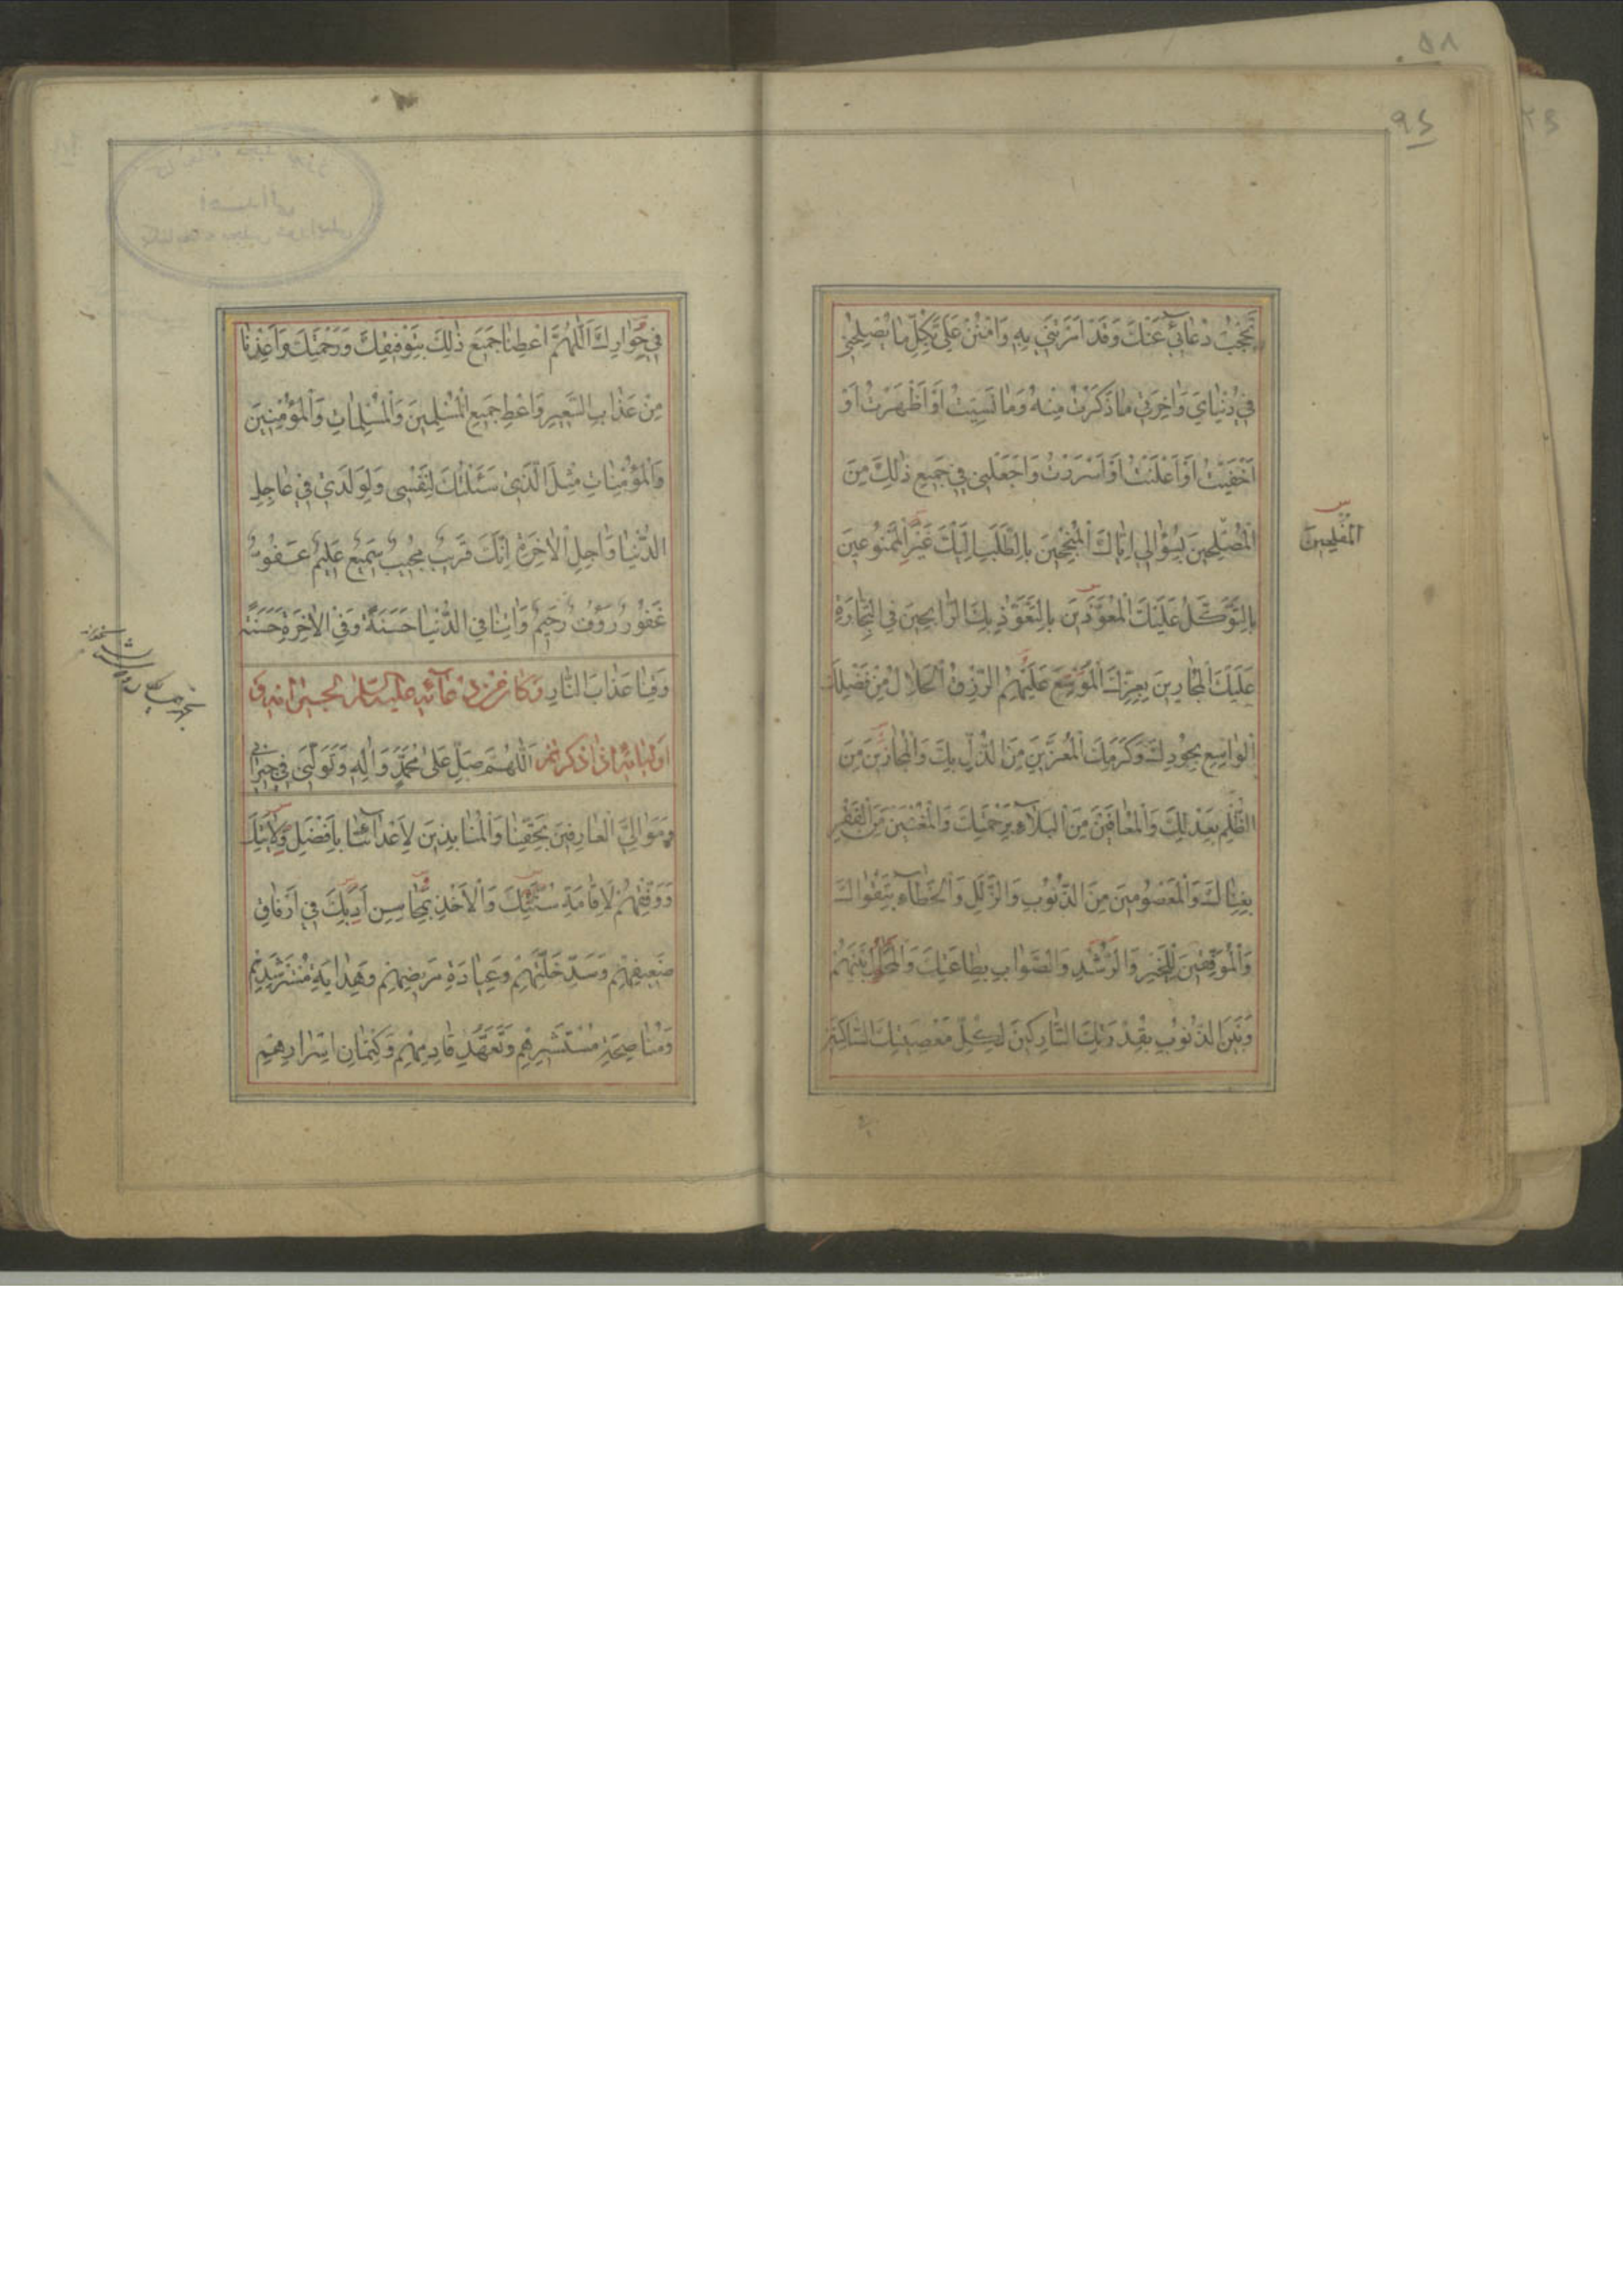 تَحْجُبْ دُعَائِي عَنْكَ وَقَدْ اَمَرْتَنِي بِهِ وَامْنُنْ عَلَيَّ بِكُلِّ مَا يُصْلِحُنِي
فِي دُنْيَايَ وَاٰخِرَتِي مَا ذَكَرْتُ مِنْهُ وَمَا نَسِيتُ اَوْ اَظْهَرْتُ اَوْ
اَخْفَيْتُ اَوْ اَعْلَنْتُ اَوْ اَسْرَرْتُ وَاجْعَلْنِي فِي جَمِيعِ ذٰلِكَ مِنَ
الْمُصْلِحِينَ بِسُؤَالِي اِيَّاكَ الْمُنْجِحِينَ بِالطَّلَبِ اِلَيْكَ غَيْرِ الْمَمْنُوعِينَ
المفلحين
بِالتَّوَكُّلِ عَلَيْكَ الْمُعَوَّذِينَ بِالتَّعَوُّذِ بِكَ الرَّابِحِينَ فِي التِّجَارَةِ
عَلَيْكَ الْمُجَارِينَ بِعِزِّكَ الْمُوَسَّعِ عَلَيْهِمُ الرِّزْقُ الْحَلَالُ مِنْ فَضْلِكَ
الْوَاسِعِ بِجُودِكَ وَكَرَمِكَ الْمُعَزِّينَ مِنَ الذُّلِّ بِكَ وَالْمُجَارِينَ مِنَ
الظُّلْمِ بِعَدْلِكَ وَالْمُعَافَيْنَ مِنَ الْبَلَاءِ بِرَحْمَتِكَ وَالْمُغْنَيْنَ مِنَ الْفَقْرِ
بِغِنَاكَ وَالْمَعْصُومِينَ مِنَ الذُّنُوبِ وَالزَّلَلِ وَالْخَطَاءِ بِتَقْوَاكَ
وَالْمُوَفَّقِينَ لِلْخَيْرِ وَالرُّشْدِ وَالصَّوَابِ بِطَاعَتِكَ وَالْمُحَالِ بَيْنَهُمْ
وَبَيْنَ الذُّنُوبِ بِقُدْرَتِكَ التَّارِكِينَ لِكُلِّ مَعْصِيَتِكَ السَّاكِنِينَ
فِي جِوَارِكَ اَللّٰهُمَّ اَعْطِنَا جَمِيعَ ذٰلِكَ بِتَوْفِيقِكَ وَرَحْمَتِكَ وَاَعِذْنَا
مِنْ عَذَابِ السَّعِيرِ وَاَعْطِ جَمِيعَ الْمُسْلِمِينَ وَالْمُسْلِمَاتِ وَالْمُؤْمِنِينَ
وَالْمُؤْمِنَاتِ مِثْلَ الَّذِي سَئَلْتُكَ لِنَفْسِي وَلِوَلَدِي فِي عَاجِلِ
الدُّنْيَا وَاٰجِلِ الْاٰخِرَةِ اِنَّكَ قَرِيبٌ مُجِيبٌ سَمِيعٌ عَلِيمٌ عَفُوٌّ
غَفُورٌ رَؤُفٌ رَحِيمٌ وَاٰتِنَا فِي الدُّنْيَا حَسَنَةً وَفِي الْاٰخِرَةِ حَسَنَةً
وَقِنَا عَذَابَ النَّارِ وَكَانَ مِنْ دُعَائِهِ عَلَيْهِ السَّلَامُ لِجِيرَانِهِ وَ
اَوْلِيَائِهِ اِذَا ذَكَرَهُمْ اَللّٰهُمَّ صَلِّ عَلَى مُحَمَّدٍ وَاٰلِهِ وَتَوَلَّنِي فِي جِيرَانِي
وَمَوَالِيَّ الْعَارِفِينَ بِحَقِّنَا وَالْمُنَابِذِينَ لِاَعْدَائِنَا بِاَفْضَلِ وَلَايَتِكَ
وَوَفِّقْهُمْ لِاِقَامَةِ سُنَّتِكَ وَالْاَخْذِ بِمَحَاسِنِ اَدَبِكَ فِي اِرْفَاقِ
ضَعِيفِهِمْ وَسَدِّ خَلَّتِهِمْ وَعِيَادَةِ مَرِيضِهِمْ وَهِدَايَةِ مُسْتَرْشِدِهِمْ
وَمُنَاصَحَةِ مُسْتَشِيرِهِمْ وَتَعَهُّدِ قَادِمِهِمْ وَكِتْمَانِ اَسْرَارِهِمْ